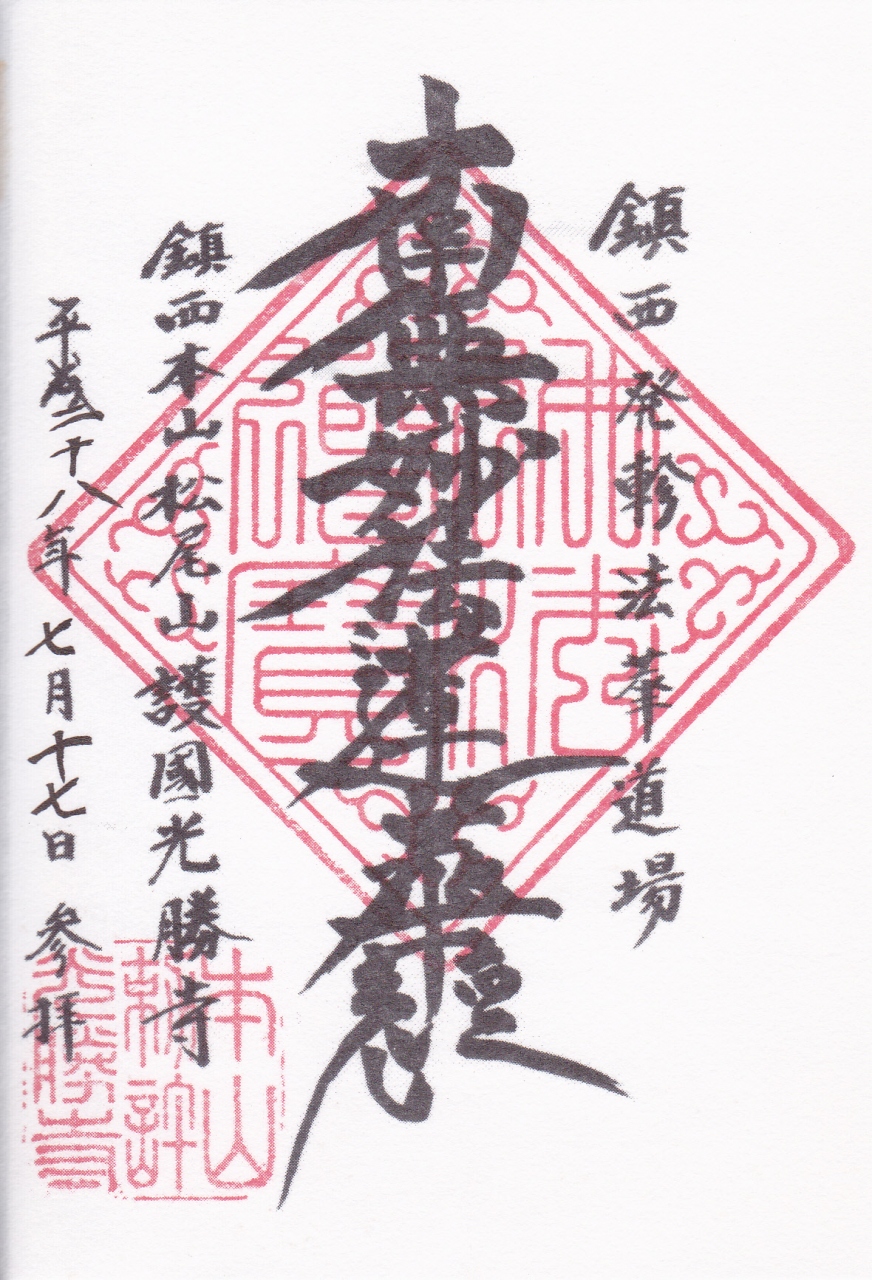 鎮西発軫法華道場
南無妙法蓮華經
鎮西本山松尾山護國光勝寺
平成二十八年七月十七日 参拝
佛法
僧寳
本山
勅許
光勝寺